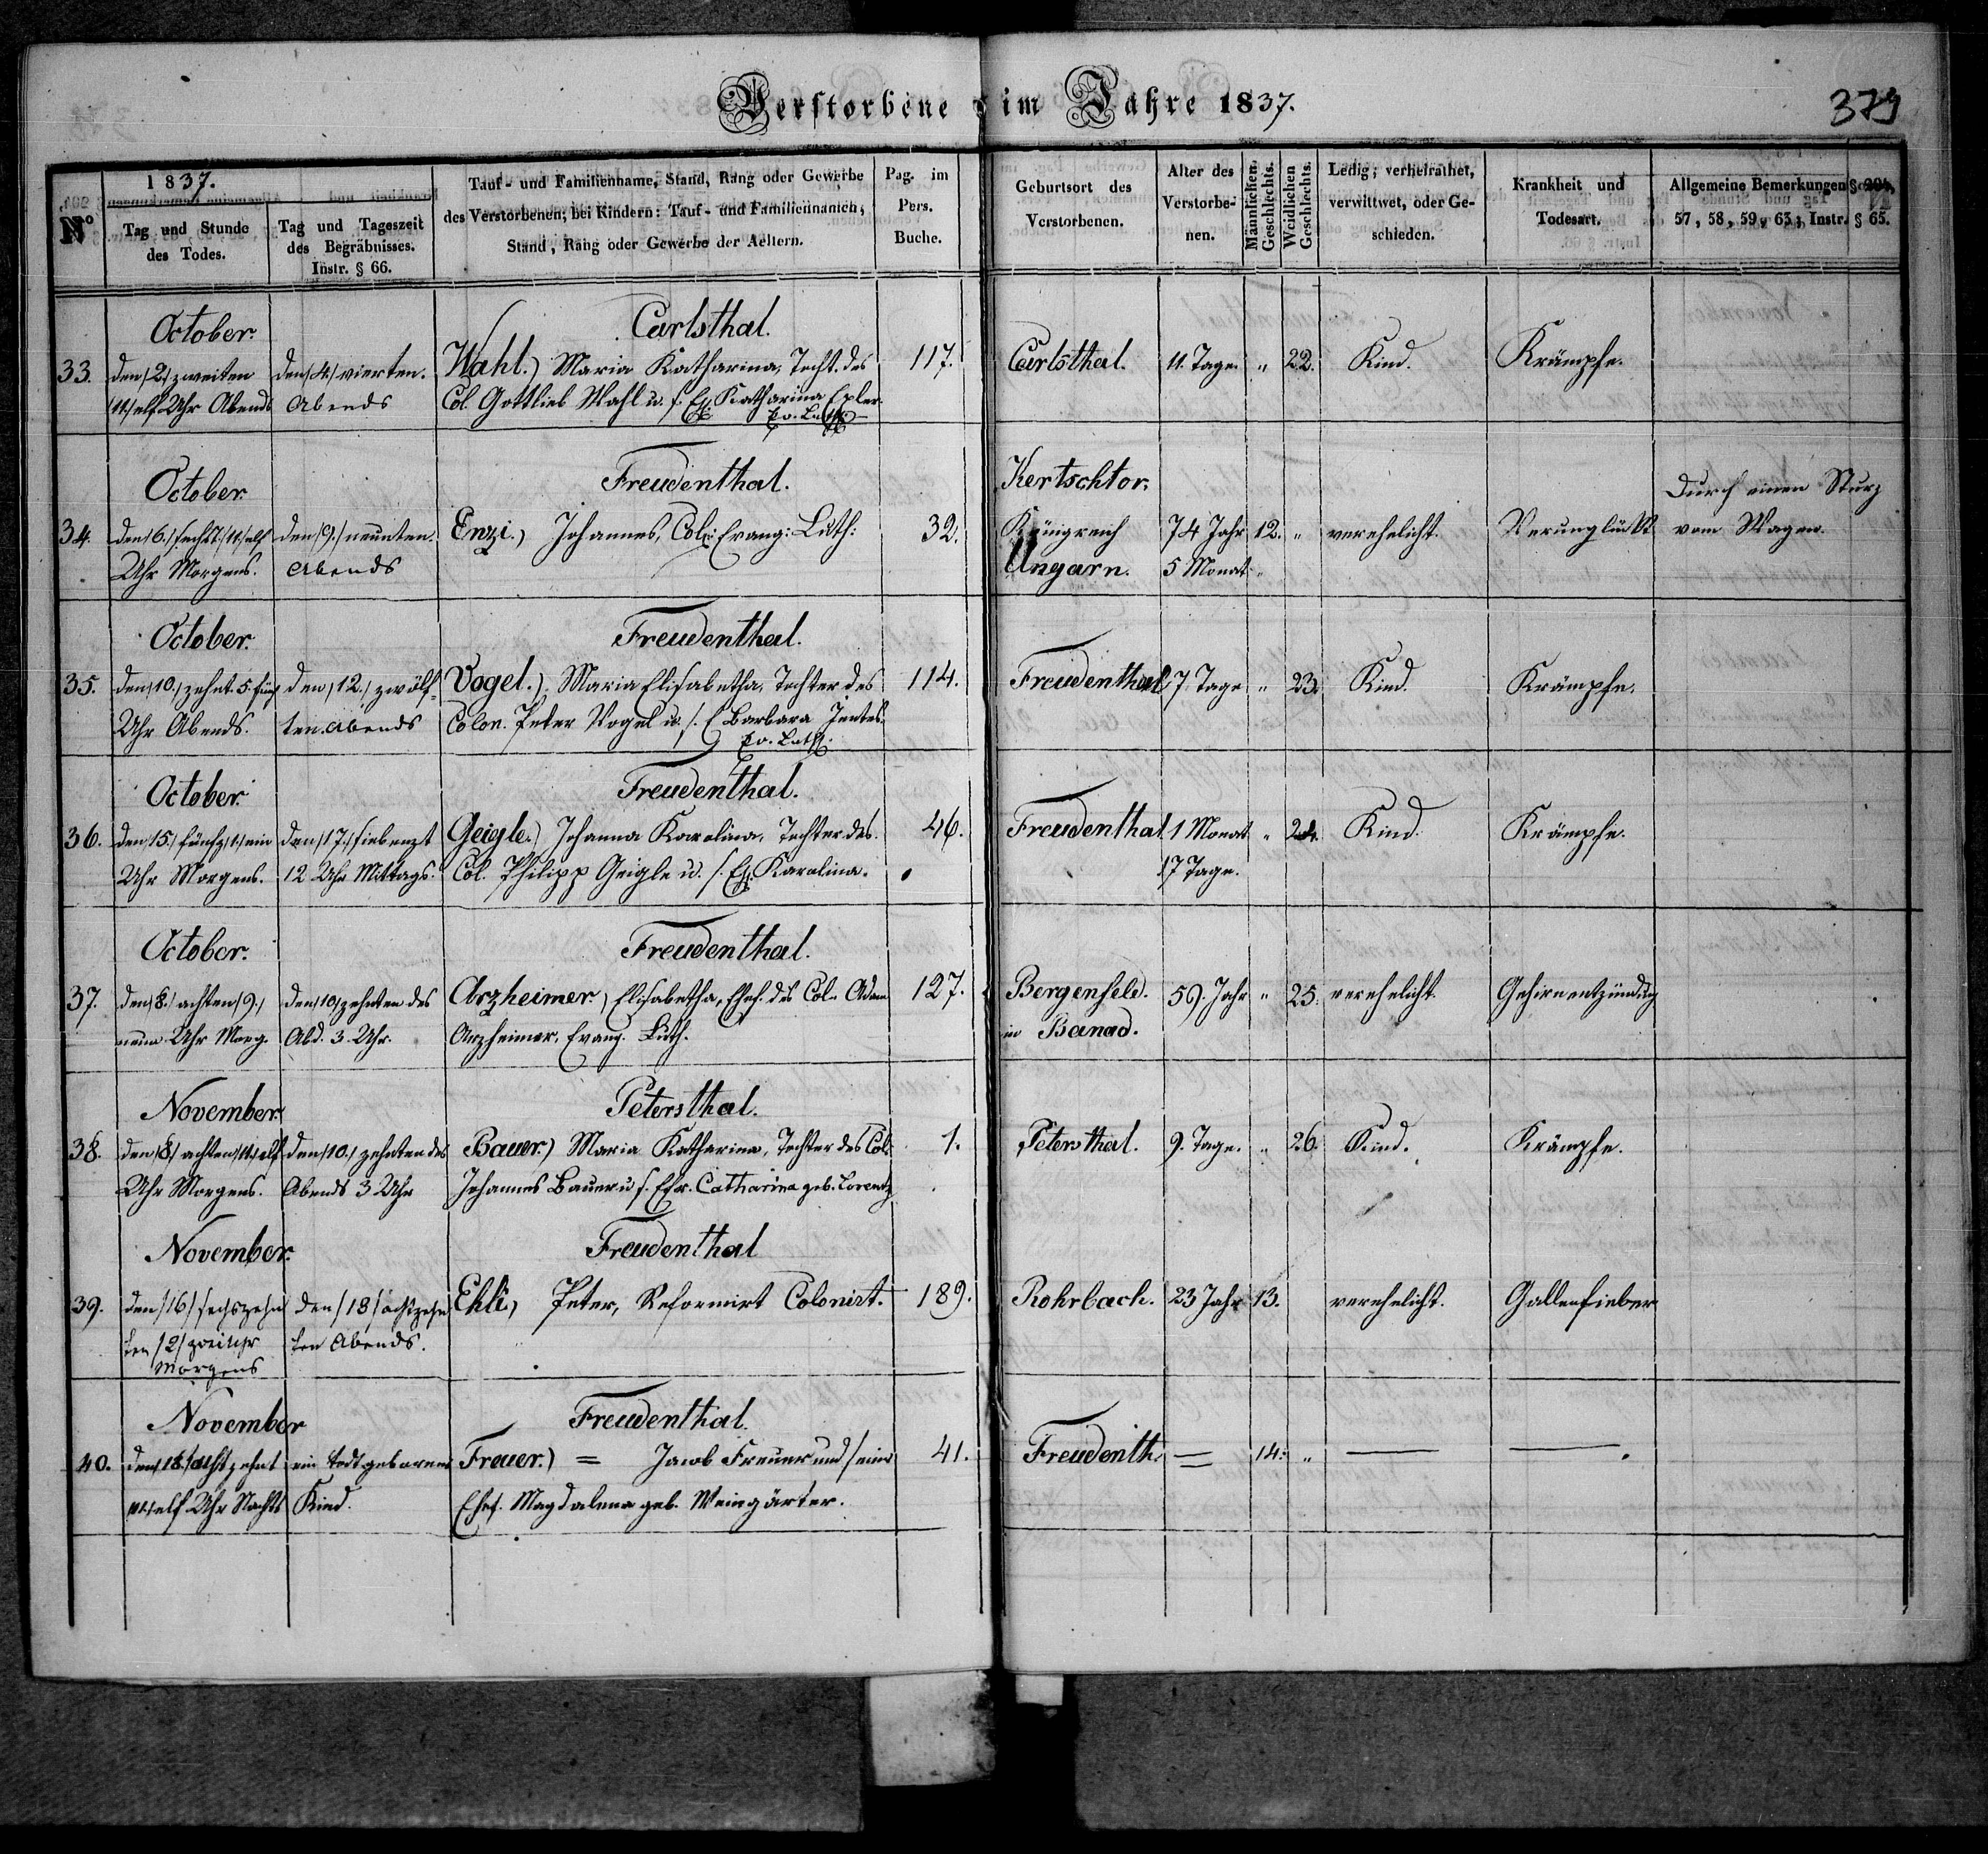 Verstorbene im Jahre 1837.
379
No
1837.
Tag und Stunde des Todes.
Tag und Tageszeit des Begräbnisses. Instr. § 66.
Tauf- und Familienname, Stand, Rang oder Gewerbe des Verstorbenen; bei Kindern: Tauf- und Familiennamen, Stand, Rang oder Gewerbe der Aeltern.
Pag. im Pers. Buche.
Geburtsort des Verstorbenen.
Alter des Verstorbenen.
Männlichen Geschlechts.
Weiblichen Geschlechts.
Ledig, verheirathet, verwittwet, oder Geschieden.
Krankheit und Todesart.
Allgemeine Bemerkungen § 57, 58, 59, 63, Instr. § 65.
October. Carlsthal.
33. den /2/ zweiten den /4/ vierten. Wahl.) Maria Katharina, Tocht. des 117. Carlsthal. 11. Tage. " 22. Kind. Krämpfe.
/11/ elf Uhr Abends Abends Col. Gottlieb Wahl u. s. Ef. Katharina Exler.
Ev. Luth.
October. Freudenthal. Kertschtor, Durch einen Sturz
34. den /6./ sechst /11/ elf den /9./ neunten. Enzi.) Johannes, Col. Evang: Luth: 32. Königreich 74 Jahr 12. " verehelicht. Verunglückt vom Wagen.
Uhr Morgens. Abends Ungarn. 5 Monat.
October. Freudenthal.
35. den /10./ zehnt. 5. fünf den /12./ zwölf- Vogel.) Maria Elisabetha, Tochter des 114. Freudenthal 7. Tage " 23. Kind. Krämpfe.
Uhr Abends. ten. Abends Colon. Peter Vogel u. s. E Barbara Jentes.
Ev. Luth.
October. Freudenthal.
36. den /15./ fünfz /1/ ein den /17./ siebenzt Geigle.) Johanna Karolina, Tochter des 46. Freudenthal. 1 Monat " 24. Kind. Krämpfe.
Uhr Morgens. 12 Uhr Mittags. Col. Philipp Geigle u. s. Ef. Karolina. 17 Tage.
October. Freudenthal.
37. den /8./ achten /9./ den /10/ zehnten des Arzheimer.) Elisabetha, Ehef. des Col. Adam 127. Bergenfeld. 59. Jahr " 25. verehelicht. Gehirnentzündug
neun Uhr Morg. Abd. 3. Uhr. Arzheimer, Evang. Luth. in Banad.
November. Petersthal.
38. den /8/ achten /11/ elf den /10./ zehnten des Bauer.) Maria Katharina, Tochter des Col. 1. Petersthal. 9. Tage. " 26. Kind. Krämpfe.
Uhr Morgens. Abends 3 Uhr Johannes Bauer u s. Efr. Catharina geb. Lorentz
November. Freudenthal
39. den /16/ sechszehn den /18/ achtzehn Ehli, Peter, Reformirt Colonist. 189. Rohrbach. 23 Jahr 13. verehelicht. Gallenfieber
ten /2/ zwei Uhr ten Abends.
Morgens
November Freudenthal.
40. den /18/ achtzehnt ein todtgebornes Freuer.) = Jacob Freuer und seine 41. Freudenth. = 14. "
/11/ elf Uhr Nachts Kind. Ehef. Magdalena geb. Weingärter.